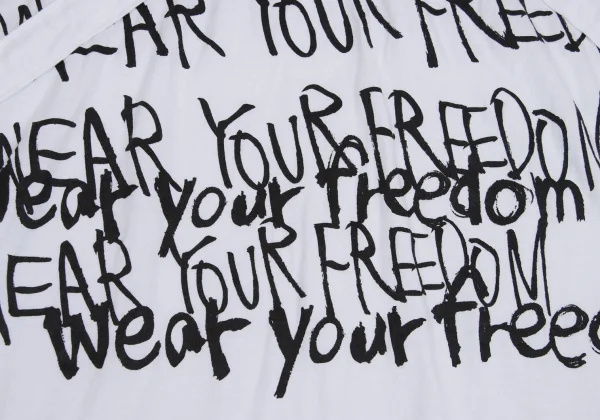 WEAR YOUR FREED
WEAR YOUR FREEDOM
wear your freedom
WEAR YOUR FREEDOM
wear your freed